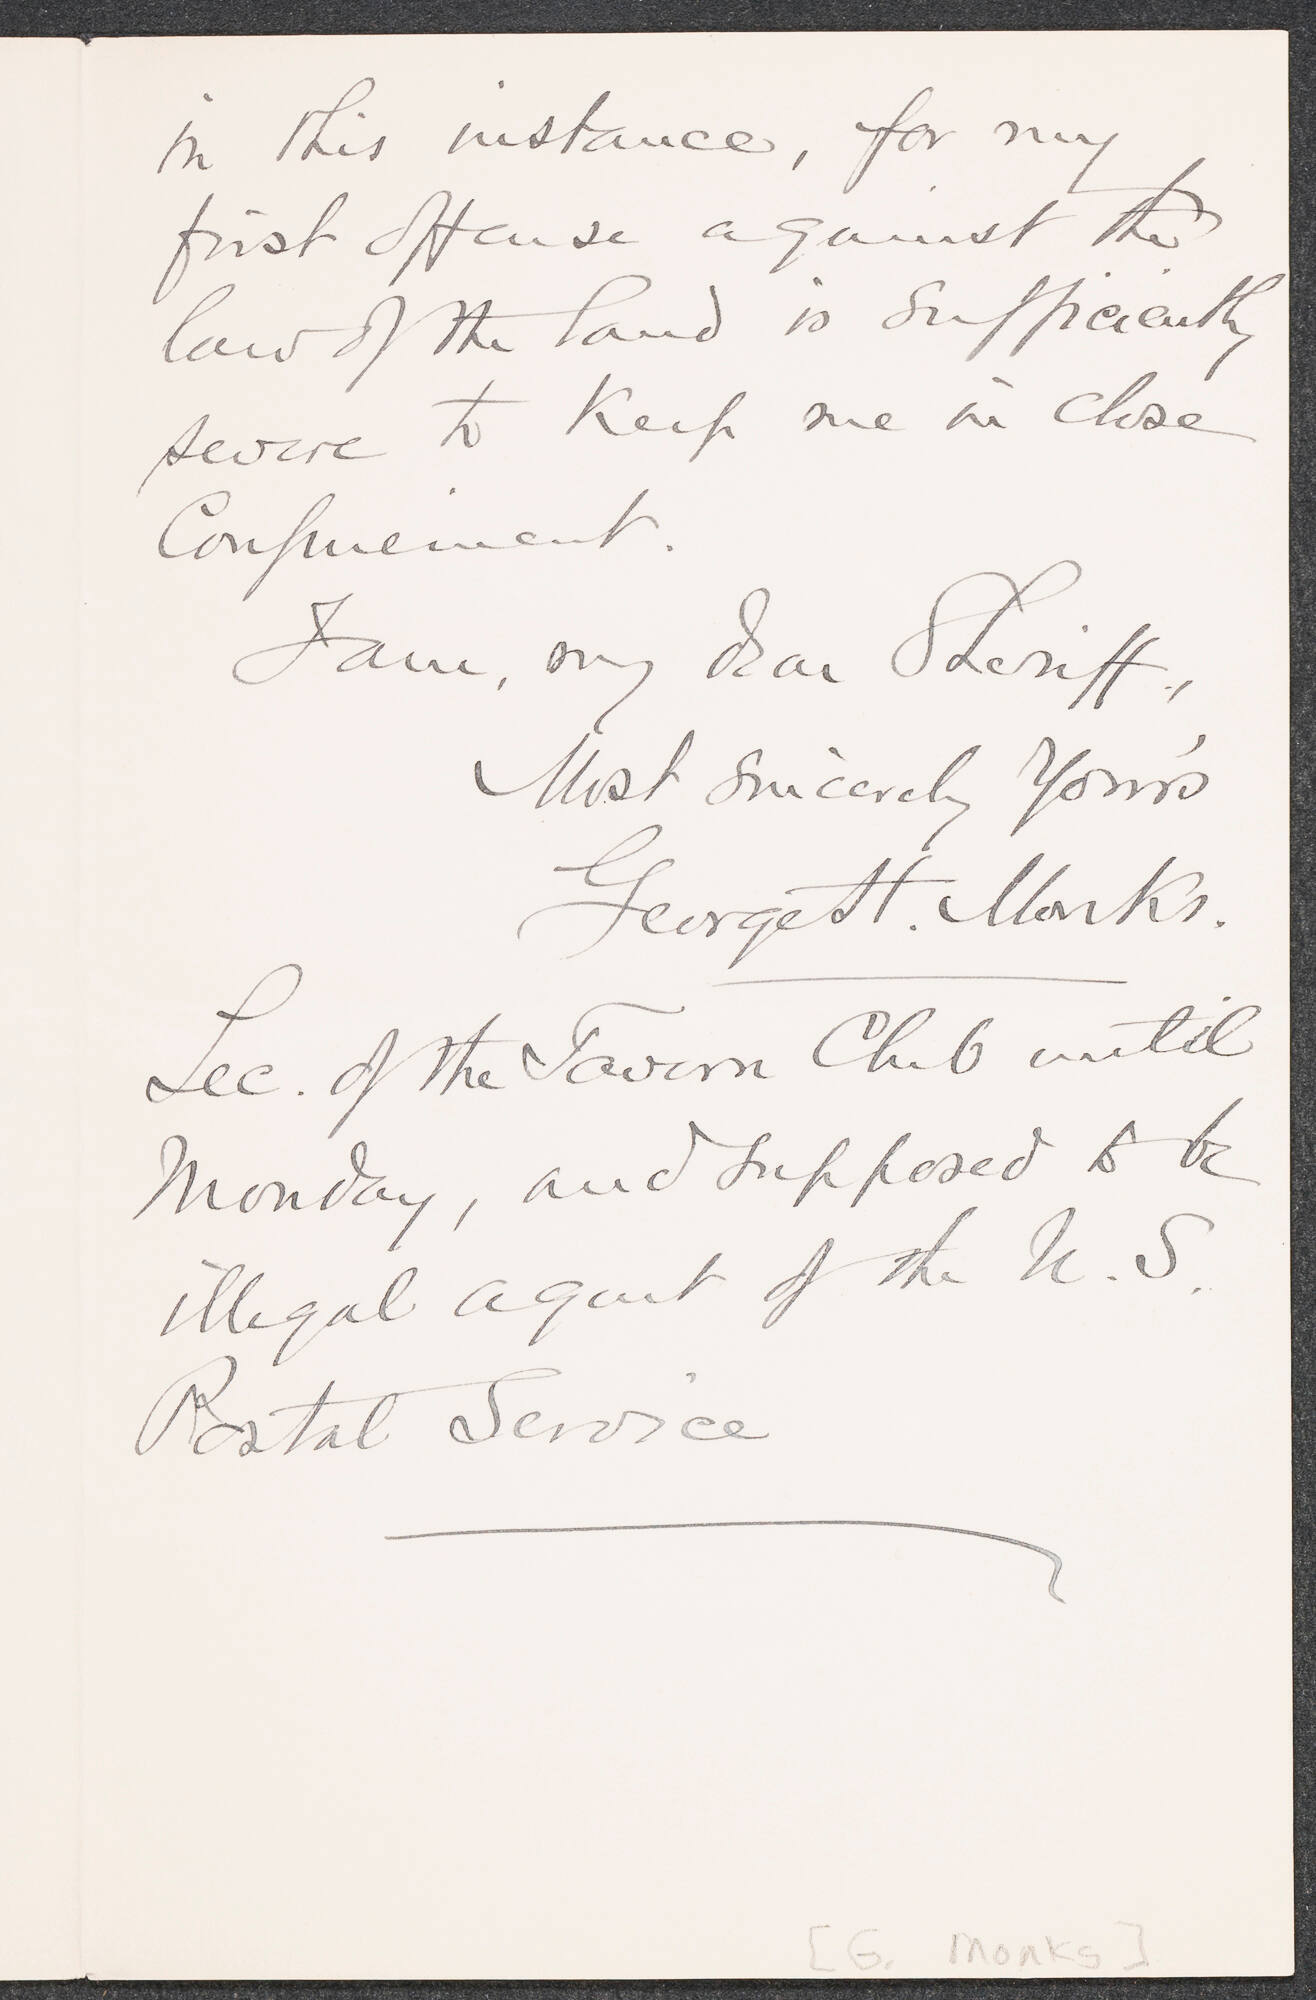 in this instance, for my
first offense against the
law of the land is sufficiently
severe to keep me in close
Confinement.
I am, my dear Sheriff,
Most sincerely Yours
George H. Monks.
Sec. of the Tavern Club until
Monday, and supposed to be
illegal agent of the U.S.
Postal Service
[G. Monks]